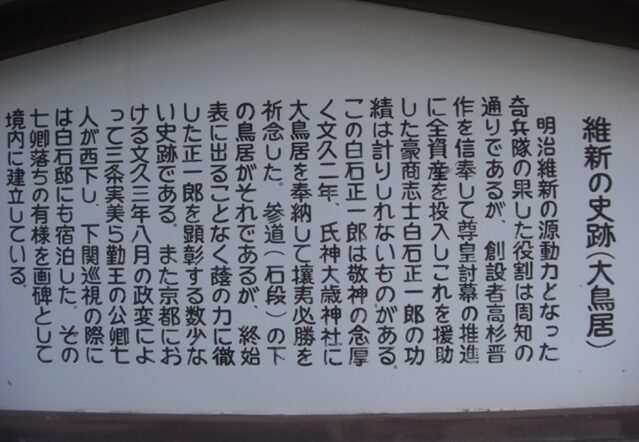 維新の史跡(大鳥居)
明治維新の源動力となった
奇兵隊の果した役割は周知の
通りであるが、創設者高杉晋
作を信奉して尊皇討幕の推進
に全資産を投入しこれを援助
した豪商志士白石正一郎の功
績は計りしれないものがある。
この白石正一郎は敬神の念厚
く文久二年、氏神大歳神社に
大鳥居を奉納して攘夷必勝を
祈念した。参道(石段)の下
の鳥居がそれであるが、終始
表に出ることなく蔭の力に徹
した正一郎を顕彰する数少な
い史跡である。また京都にお
ける文久三年八月の政変によ
って三条実美ら勤王の公卿七
人が西下し、下関巡視の際に
は白石邸にも宿泊した。その
七卿落ちの有様を画碑として
境内に建立している。